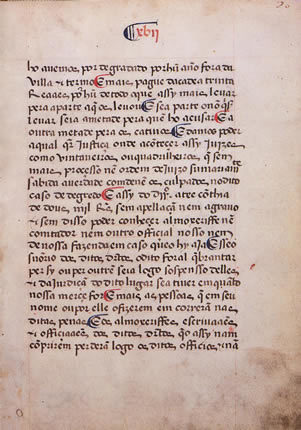 xbij
ho avemos por degradado por hũ año fora da
villa & termo E mais pague da cadea trinta
Reaaes por hũ de todo que assy mais levar
pera a parte a q̃ o levou E sea parte o nõ q̃ser
levar seia a metade pera quẽ ho acusar E a
outra metade pera os cativos E damos poder a
qual q̃r Justiça onde acõteçer assy Juizes
como vintaneiros ou quadrilheiros q̃ sem
mais processo nẽ ordem de Juizo sumariamẽte
sabida a verdade comdenẽ os culpados no dito
caso de degredo E assy do drº atee cõthia
de dous mil Rs sem apellaçã nem agravo
& sem disso poder conheçer almoxeriffe nẽ
comtador nẽm outro official nosso nem
de nossa fazenda em caso que o hy aja E se o
do dito odito foral q̃brantar
per sy ou per outrẽ seia logo sospenso delles
& da Jurdiçã do dito lugar se a tiver em quãto
nossa merçe for E mais as pessoas q̃ em seu
nome ou por elle o fizerem em correrãm nas
ditas penas E os almoxeriffes escrivaães
& officiaaes dos ditos dirtºs que o assy nam
cõprirem perderãm logo os ditos officios & nã